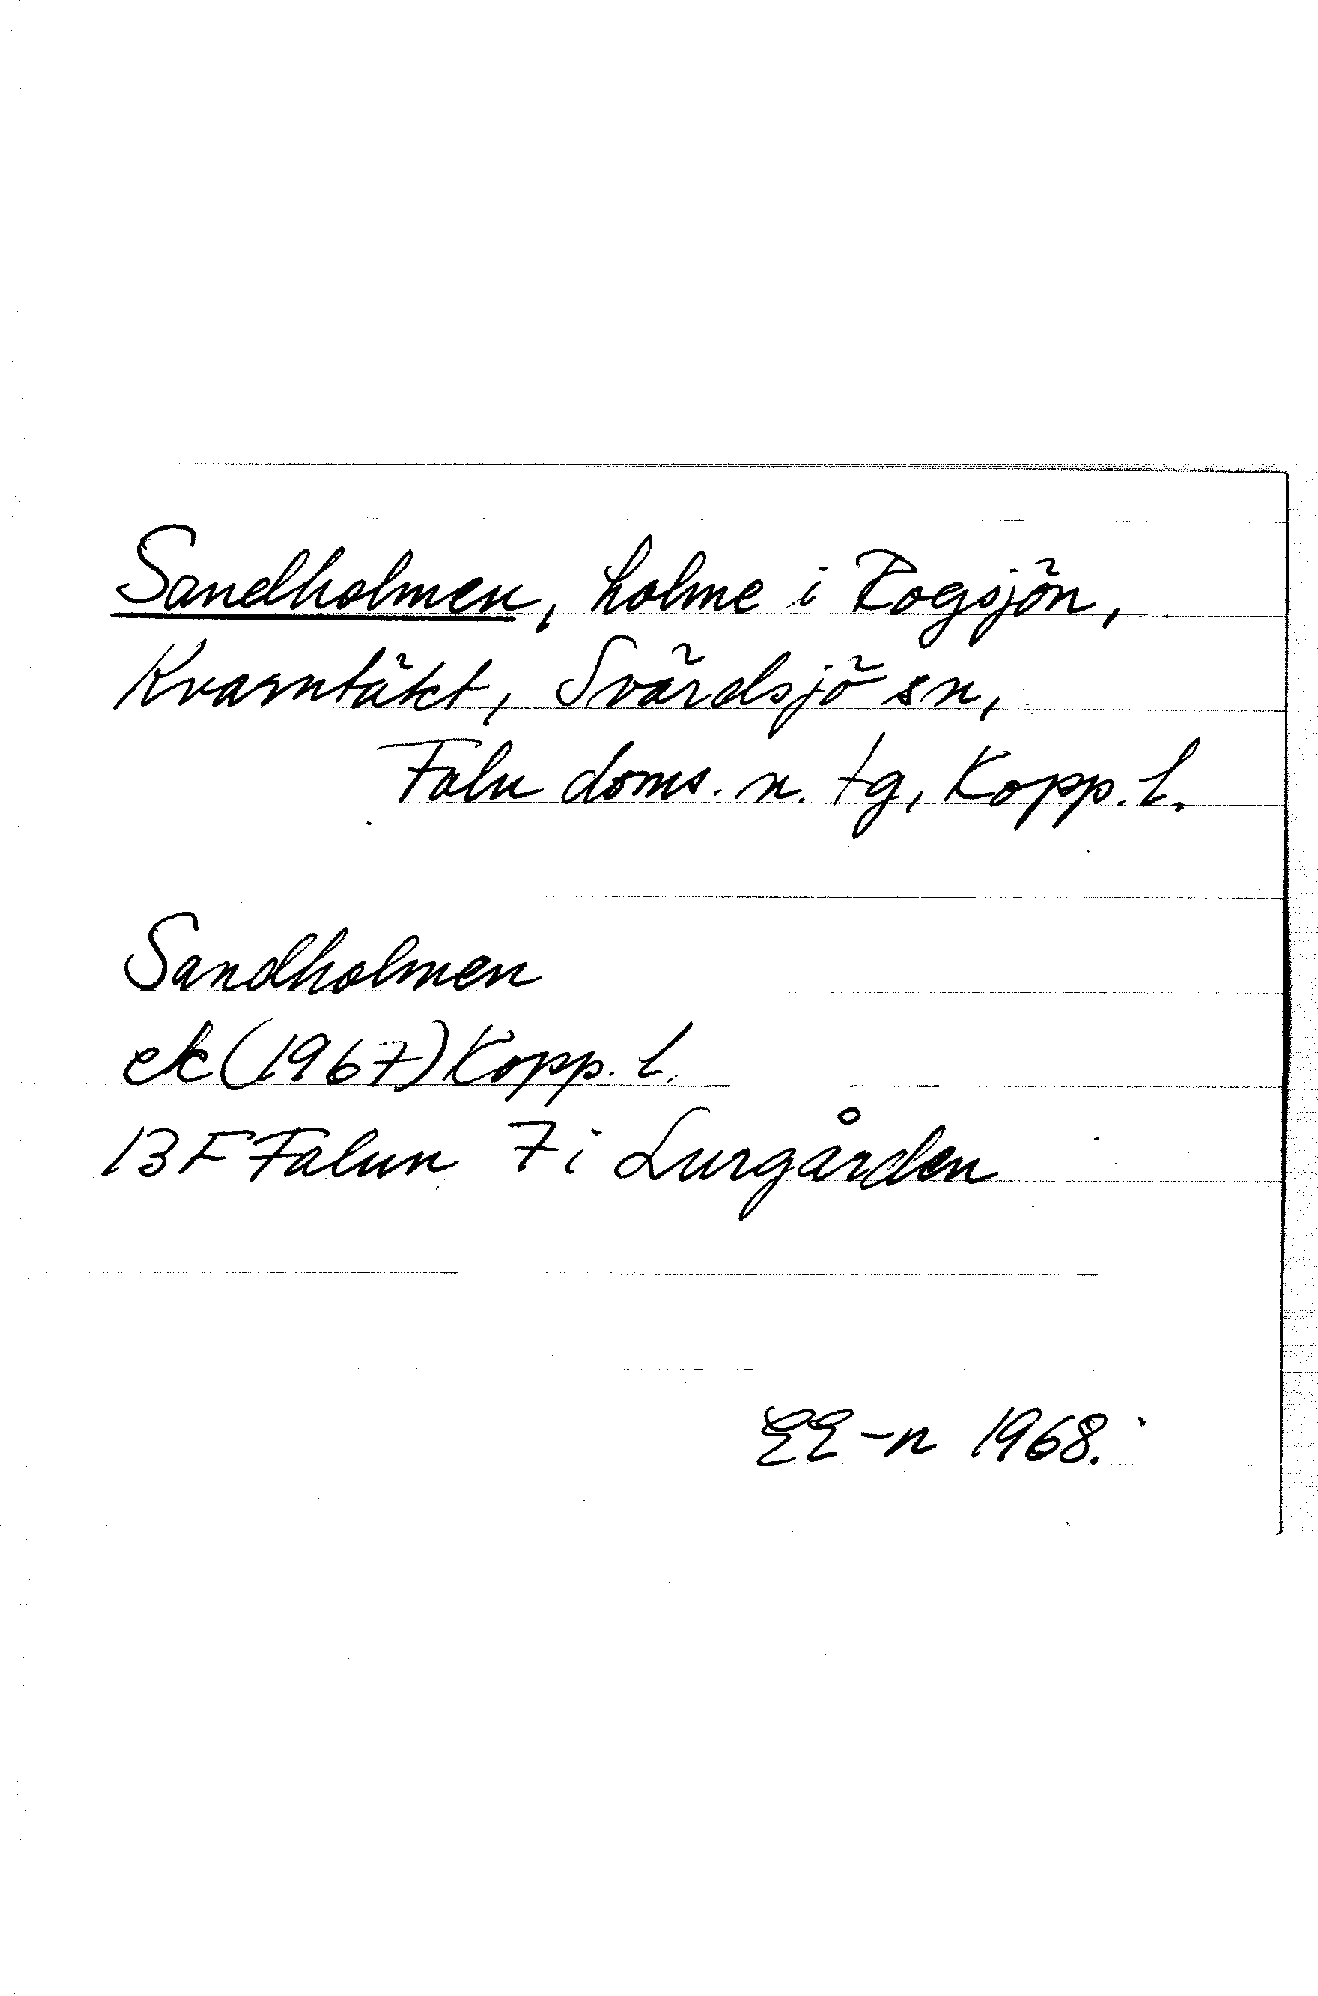 Sandholmen, holme i Rogsjön,
Kvarntäkt, Svärdsjö sn,
Falu doms. n. tg, Kopp. l.
Sandholmen
ek (1967) Kopp. l.
13 F Falun 7 i Lurgården
EE-n 1968.